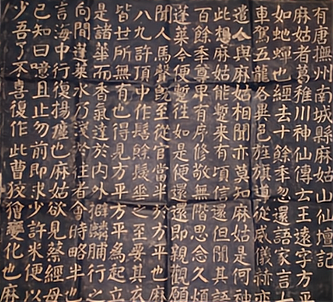 有唐撫州南城縣麻姑山仙壇記
麻姑者葛稚川神仙傳云王遠字方平
如虵蟬也經去十餘秊忽還語家言七
車駕五龍各異色旌旗導從威儀赫
遣人與麻姑相聞亦莫知麻姑是何神
此想麻姑能蹔來有頃信還但聞其語
百餘秊尊卑有序修敬無階思念久煩
蓬萊今便蹔往如是便還還即親觀願
聞人馬聲既至從官當半於方平也麻
八九許頂中作髻餘髮垂之至要其衣
皆世所無有也得見方平方平為起立
是諸華而香氣達於内外擗麟脯行之
向間蓬萊水乃淺於往者會時略半也
言海中行復揚塵也麻姑欲見蔡經母
已知曰噫且止勿前即求少許米便以
少吾了不喜復作此曹狡獪變化也麻